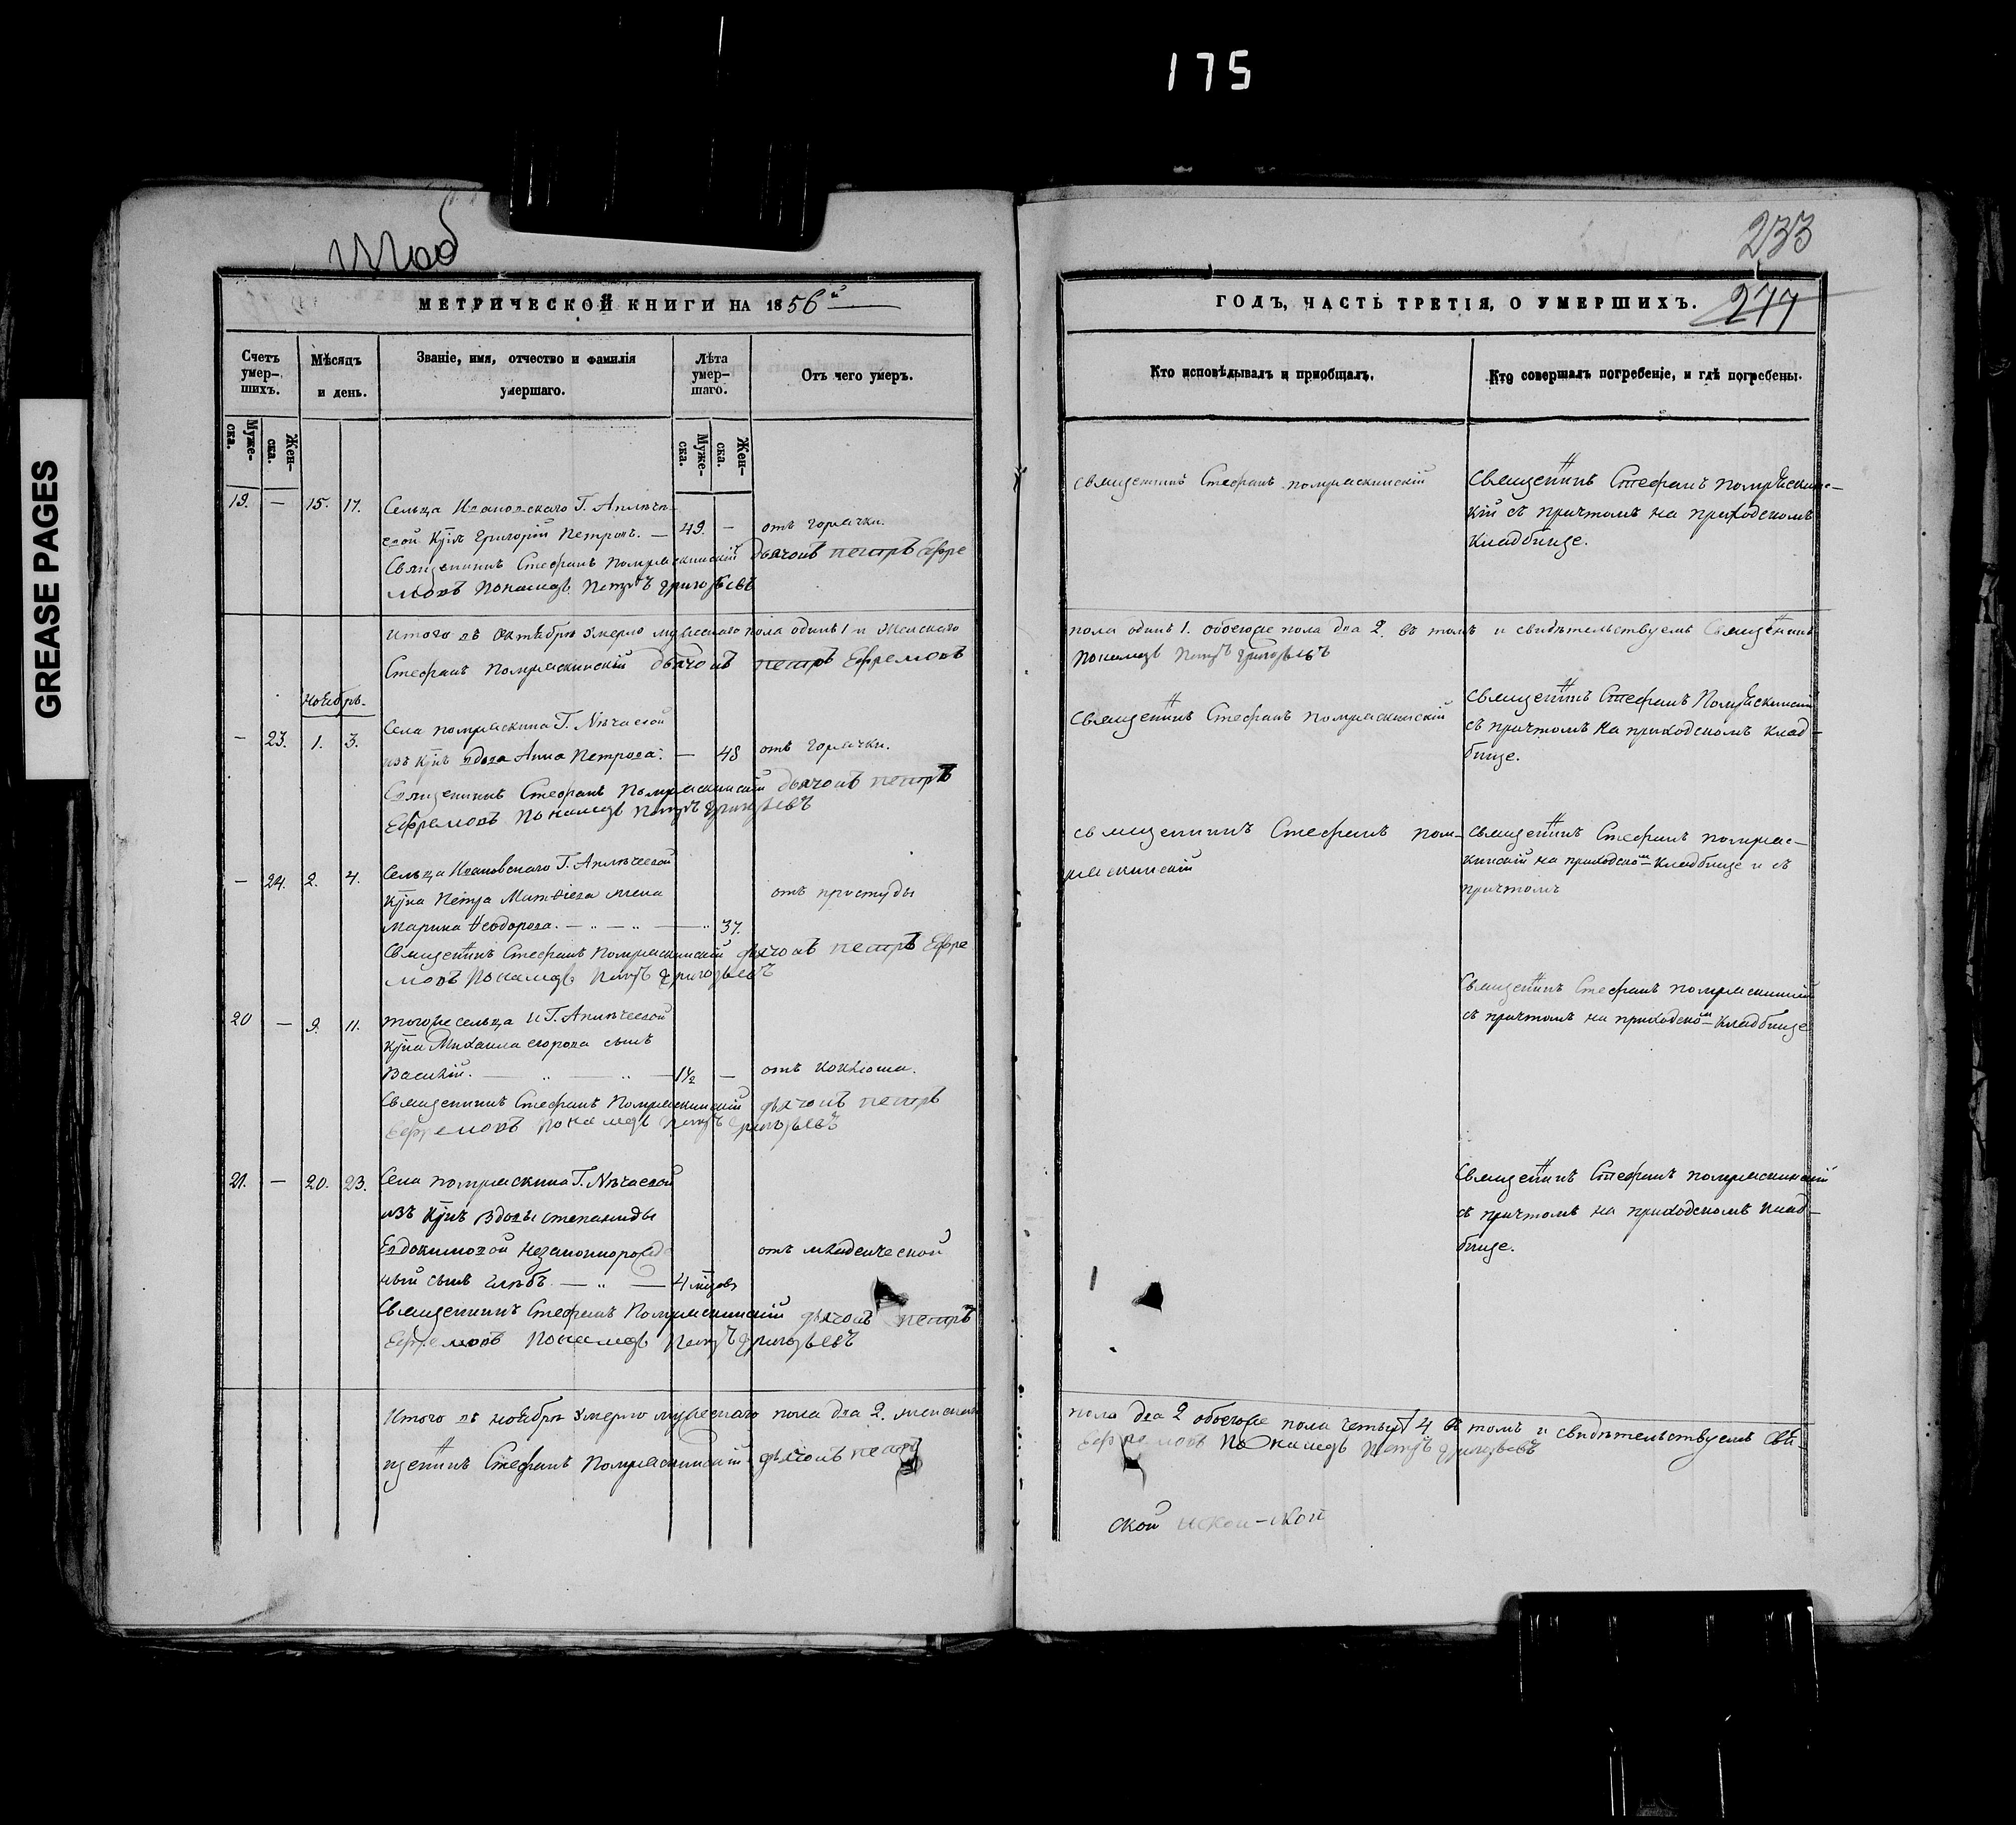 175
GREASE PAGES
233
277
МЕТРИЧЕСКОЙ КНИГИ НА 1856й
Счетъ умер-шихъ.
Мѣсяцъ и день.
Званіе, имя, отчество и фамилія умершаго.
Лѣта умер-шаго.
Отъ чего умеръ.
Муже-ска.
Жен-ска.
Муже-ска.
Жен-ска.
19. — 15. 17. Сельца Ивановскаго Г.
Григорій Петровъ. — 49. — отъ горячки.
Священникъ Стефанъ Помряскинскій дьячокъ петръ Ефре
мовъ Пономарь Петръ григорьевъ
Итого въ октѣбрѣ умерло мужескаго пола одинъ 1 и женскаго
Стефанъ Помряскинскій дьячокъ петръ Ефремовъ
Ноѣбрь.
— 23. 1. 3. Села помряскина Г. Нѣчаевой
изъ вдова Анна Петрова. — 48 отъ горячки.
Священникъ Стефанъ Помряскинскій дьячокъ петръ
Ефремовъ Пономарь Петръ григорьевъ
— 24. 2. 4. Сельца Ивановскаго Г.
Петра Матвѣева жена отъ простуды
Марина Ѳеодорова. — 37.
Священникъ Стефанъ Помряскинскій дьячокъ петръ Ефре
мовъ Пономарь Петръ григорьевъ
20 — 9. 11. тогоже сельца и Г.
Михаила егорова сынъ
Василій. — 1½ — отъ коклюша.
Священникъ Стефанъ Помряскинскій дьячокъ петръ
Ефремовъ Пономарь Петръ григорьевъ
21. — 20. 23. Села помряскина Г. Нѣчаевой
изъ вдовы степаниды
Евдокимовой незаконнорожд отъ младенческой
ный сынъ глѣбъ. — 4
Священникъ Стефанъ Помряскинскій дьячокъ петръ
Ефремовъ Пономарь Петръ григорьевъ
Итого въ ноѣбрѣ умерло мужескаго пола два 2. женскаго
щенникъ Стефанъ Помряскинскій дьячокъ петръ
ГОДЪ, ЧАСТЬ ТРЕТІЯ, О УМЕРШИХЪ.
Кто исповѣдывалъ и пріобщалъ.
Кто совершалъ погребеніе, и гдѣ погребены.
священникъ Стефанъ помряскинскій
Священникъ Стефанъ помряскинс-
кій съ причтомъ на приходскомъ
кладбищѣ.
пола одинъ 1. обоегоже пола два 2. въ томъ и свидѣтельствуемъ Священникъ
Пономарь Петръ григорьевъ
Священникъ Стефанъ помряскинскій
священникъ Стефанъ Помряскинскій
съ причтомъ на приходскомъ клад-
бищѣ.
священникъ Стефанъ пом-
ряскинскій
священникъ Стефанъ помряс-
кинскій на приходском кладбищѣ и съ
причтомъ
Священникъ Стефанъ помряскинскій
съ причтомъ на приходском кладбищѣ
Священникъ Стефанъ помряскинскій
съ причтомъ на приходскомъ клад-
бищѣ.
пола два 2 обоегоже пола четыре 4 въ томъ и свидѣтельствуемъ Свя-
Ефремовъ Пономарь Петръ григорьевъ
ской